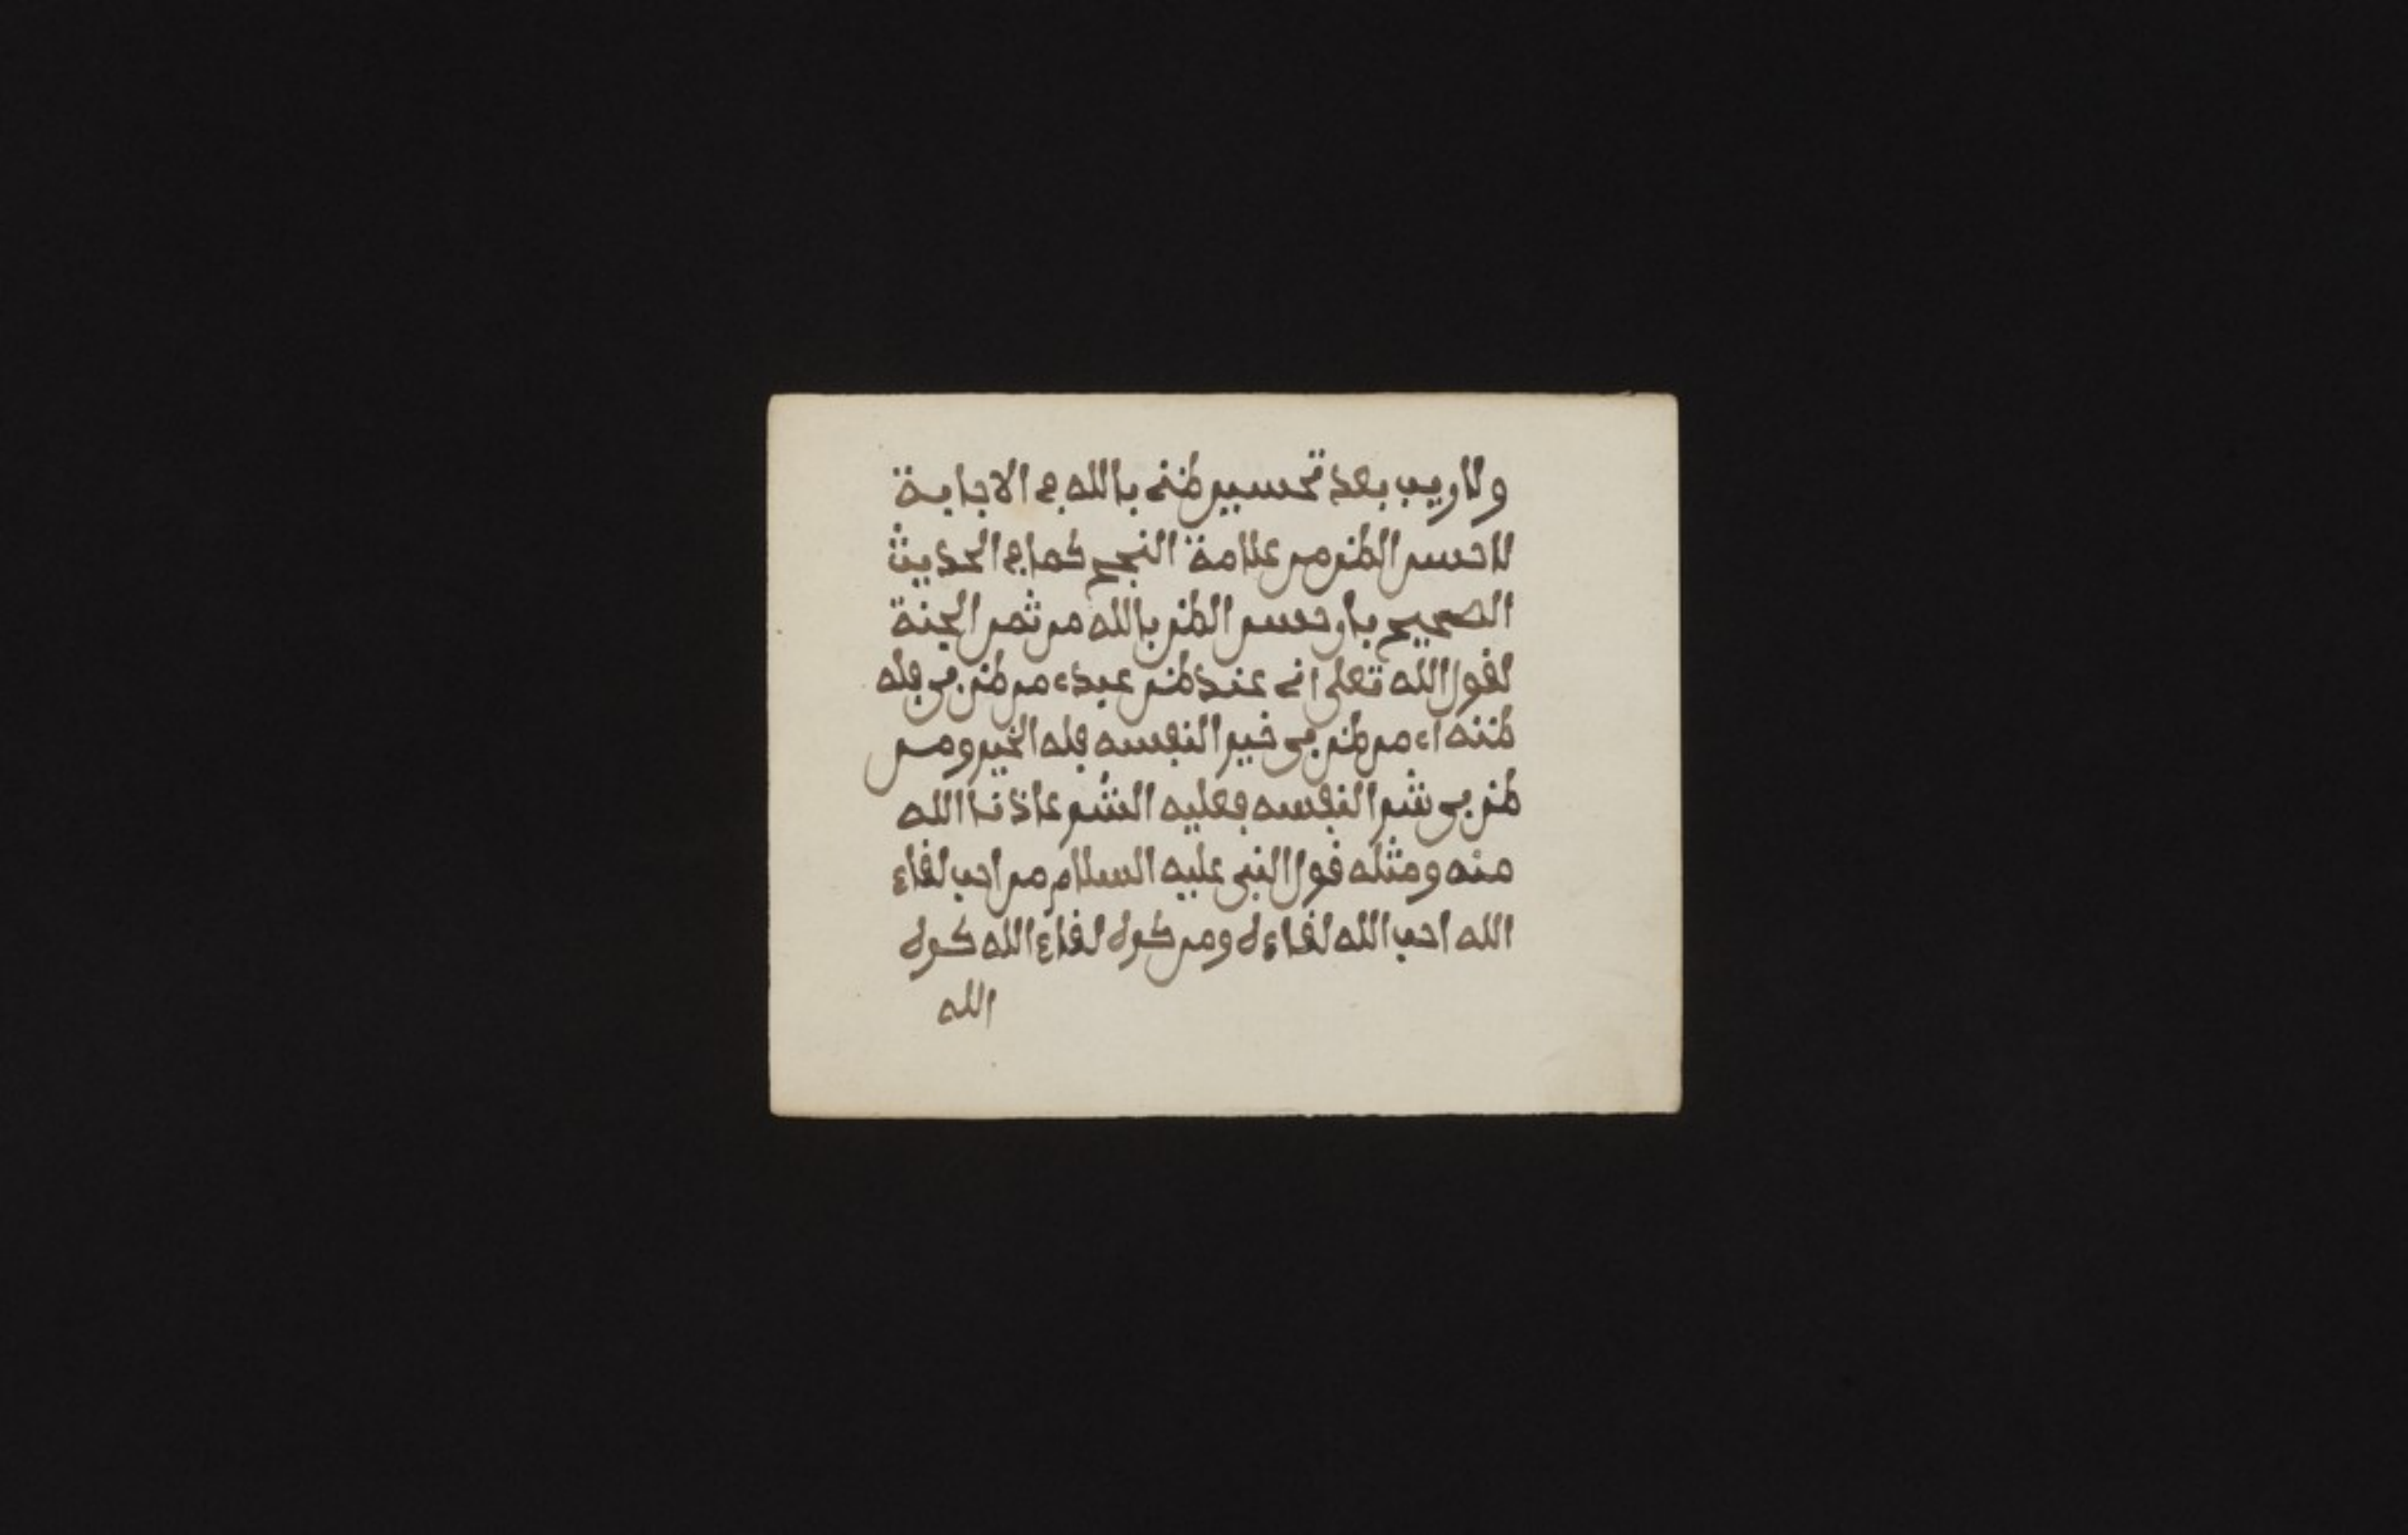 ولا ريب بعد تحسين ظنه بالله في الاجابة
لا حسن الظن من علامة النجح كما في الحديث
الصحيح بان حسن الظن بالله من ثمن الجنة
لقول الله تعلى انى عند ظن عبدى من ظن بى فله
ظننه اى من ظن بى خير النفسه فله الخير ومن
ظن بى شر النفسه فعليه الشر عاذنا الله
منه ومثله قول النبى عليه السلام من احب لقاء
الله احب الله لقاءه ومن كره لقاء الله كره
الله